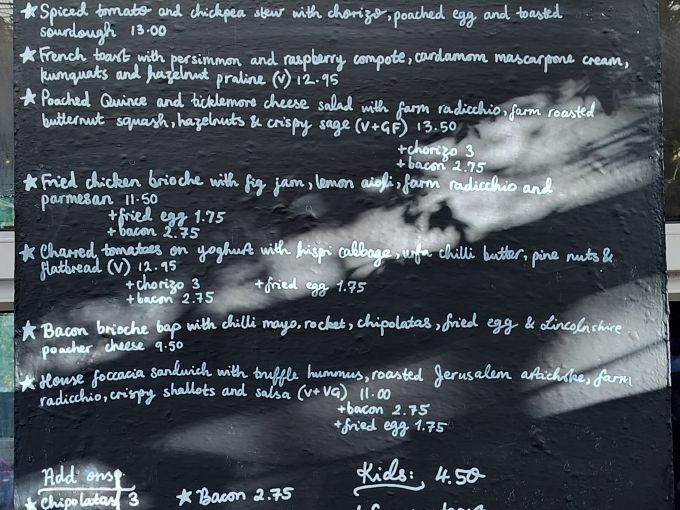 ★ Spiced tomato and chickpea stew with chorizo, poached egg and toasted
sourdough 13.00
★ French toast with persimmon and raspberry compote, cardamom mascarpone cream,
kumquats and hazelnut praline (V) 12.95
★ Poached Quince and ticklemore cheese salad with farm radicchio, farm roasted
butternut squash, hazelnuts & crispy sage (V+GF) 13.50
+chorizo 3
+bacon 2.75
★ Fried chicken brioche with fig jam, lemon aioli, farm radicchio and
parmesan 11.50
+fried egg 1.75
+bacon 2.75
★ Charred tomatoes on yoghurt with hispi cabbage, urfa chilli butter, pine nuts &
flatbread (V) 12.95
+chorizo 3 +fried egg 1.75
+bacon 2.75
★ Bacon brioche bap with chilli mayo, rocket, chipolatas, fried egg & Lincolnshire
poacher cheese 9.50
★ House foccacia sandwich with truffle hummus, roasted Jerusalem artichoke, farm
radicchio, crispy shallots and salsa (V+VG) 11.00
+bacon 2.75
+fried egg 1.75
Add ons: Kids: 4.50
★ Chipolatas 3 ★ Bacon 2.75